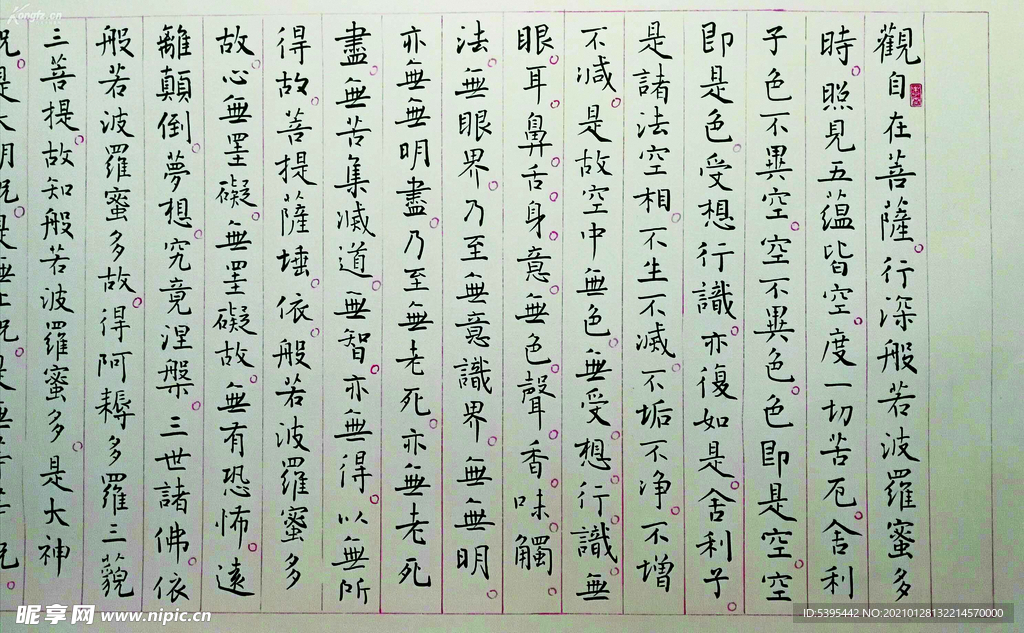 觀自在菩薩。行深般若波羅蜜多
時。照見五蘊皆空。度一切苦厄。舍利
子色不異空。空不異色。色即是空。空
即是色。受想行識。亦復如是。舍利子。
是諸法空相。不生不滅。不垢不净。不增
不減。是故空中無色。無受想行識。無
眼。耳。鼻。舌。身。意。無色聲香味觸。
法。無眼界。乃至無意識界。無無明。
亦無無明盡。乃至無老死。亦無老死
盡。無苦集滅道。無智亦無得。以無所
得故。菩提薩埵。依般若波羅蜜多
故。心無罣礙。無罣礙故。無有恐怖。遠
離顛倒。夢想。究竟涅槃。三世諸佛。依
般若波羅蜜多故。得阿耨多羅三藐
三菩提。故知般若波羅蜜多。是大神
昵享网 www.nipic.cn
ID:5395442 NO:20210128132214570000